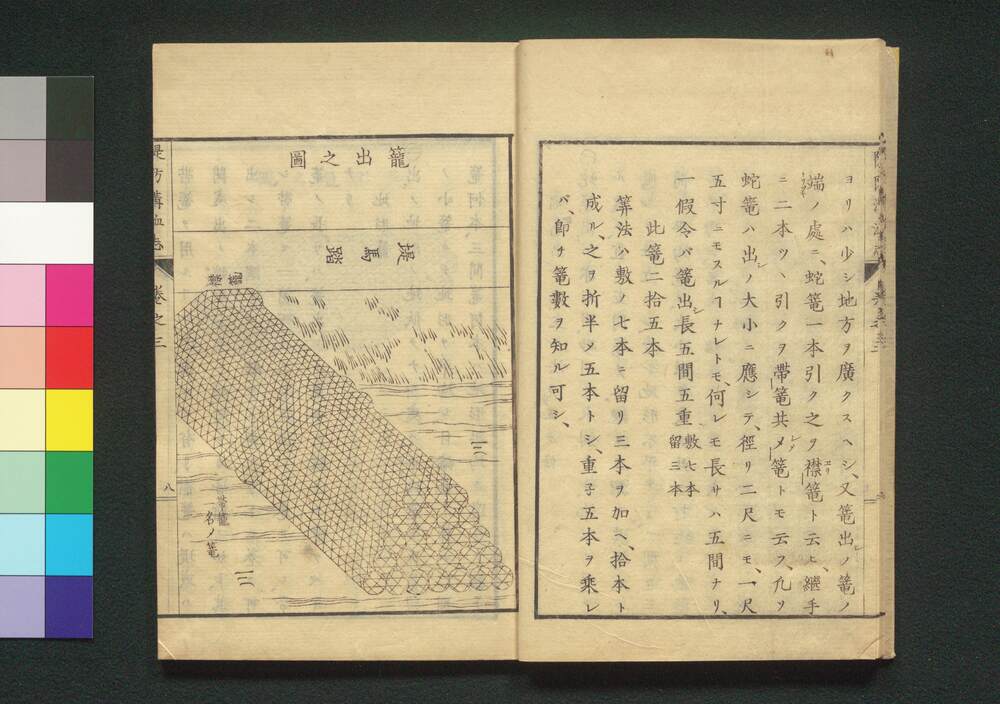 ヨリハ少シ地方ヲ廣クスヘシ、又篭出シノ篭ノ
端ノ處ニ、蛇篭一本引ク之ヲ襟篭ト云ヒ、継手
ニ二本ツヽ引クヲ帯篭共〆篭トモ云フ、凢ソ
蛇篭ハ出シノ大小ニ應シテ、徑リ二尺ニモ、一尺
五寸ニモスルヿナレトモ、何レモ長サハ五間ナリ、
一假令バ篭出シ長五間五重敷七本留三本
此篭二拾五本
筭法ハ敷ノ七本ニ留リ三本ヲ加ヘ、拾本ト
成ル、之ヲ折半〆五本トシ、重子五本ヲ乘レ
バ、即チ篭數ヲ知ル可シ、
籠出之圖
堤馬踏
名ノ篭
卷之三
八